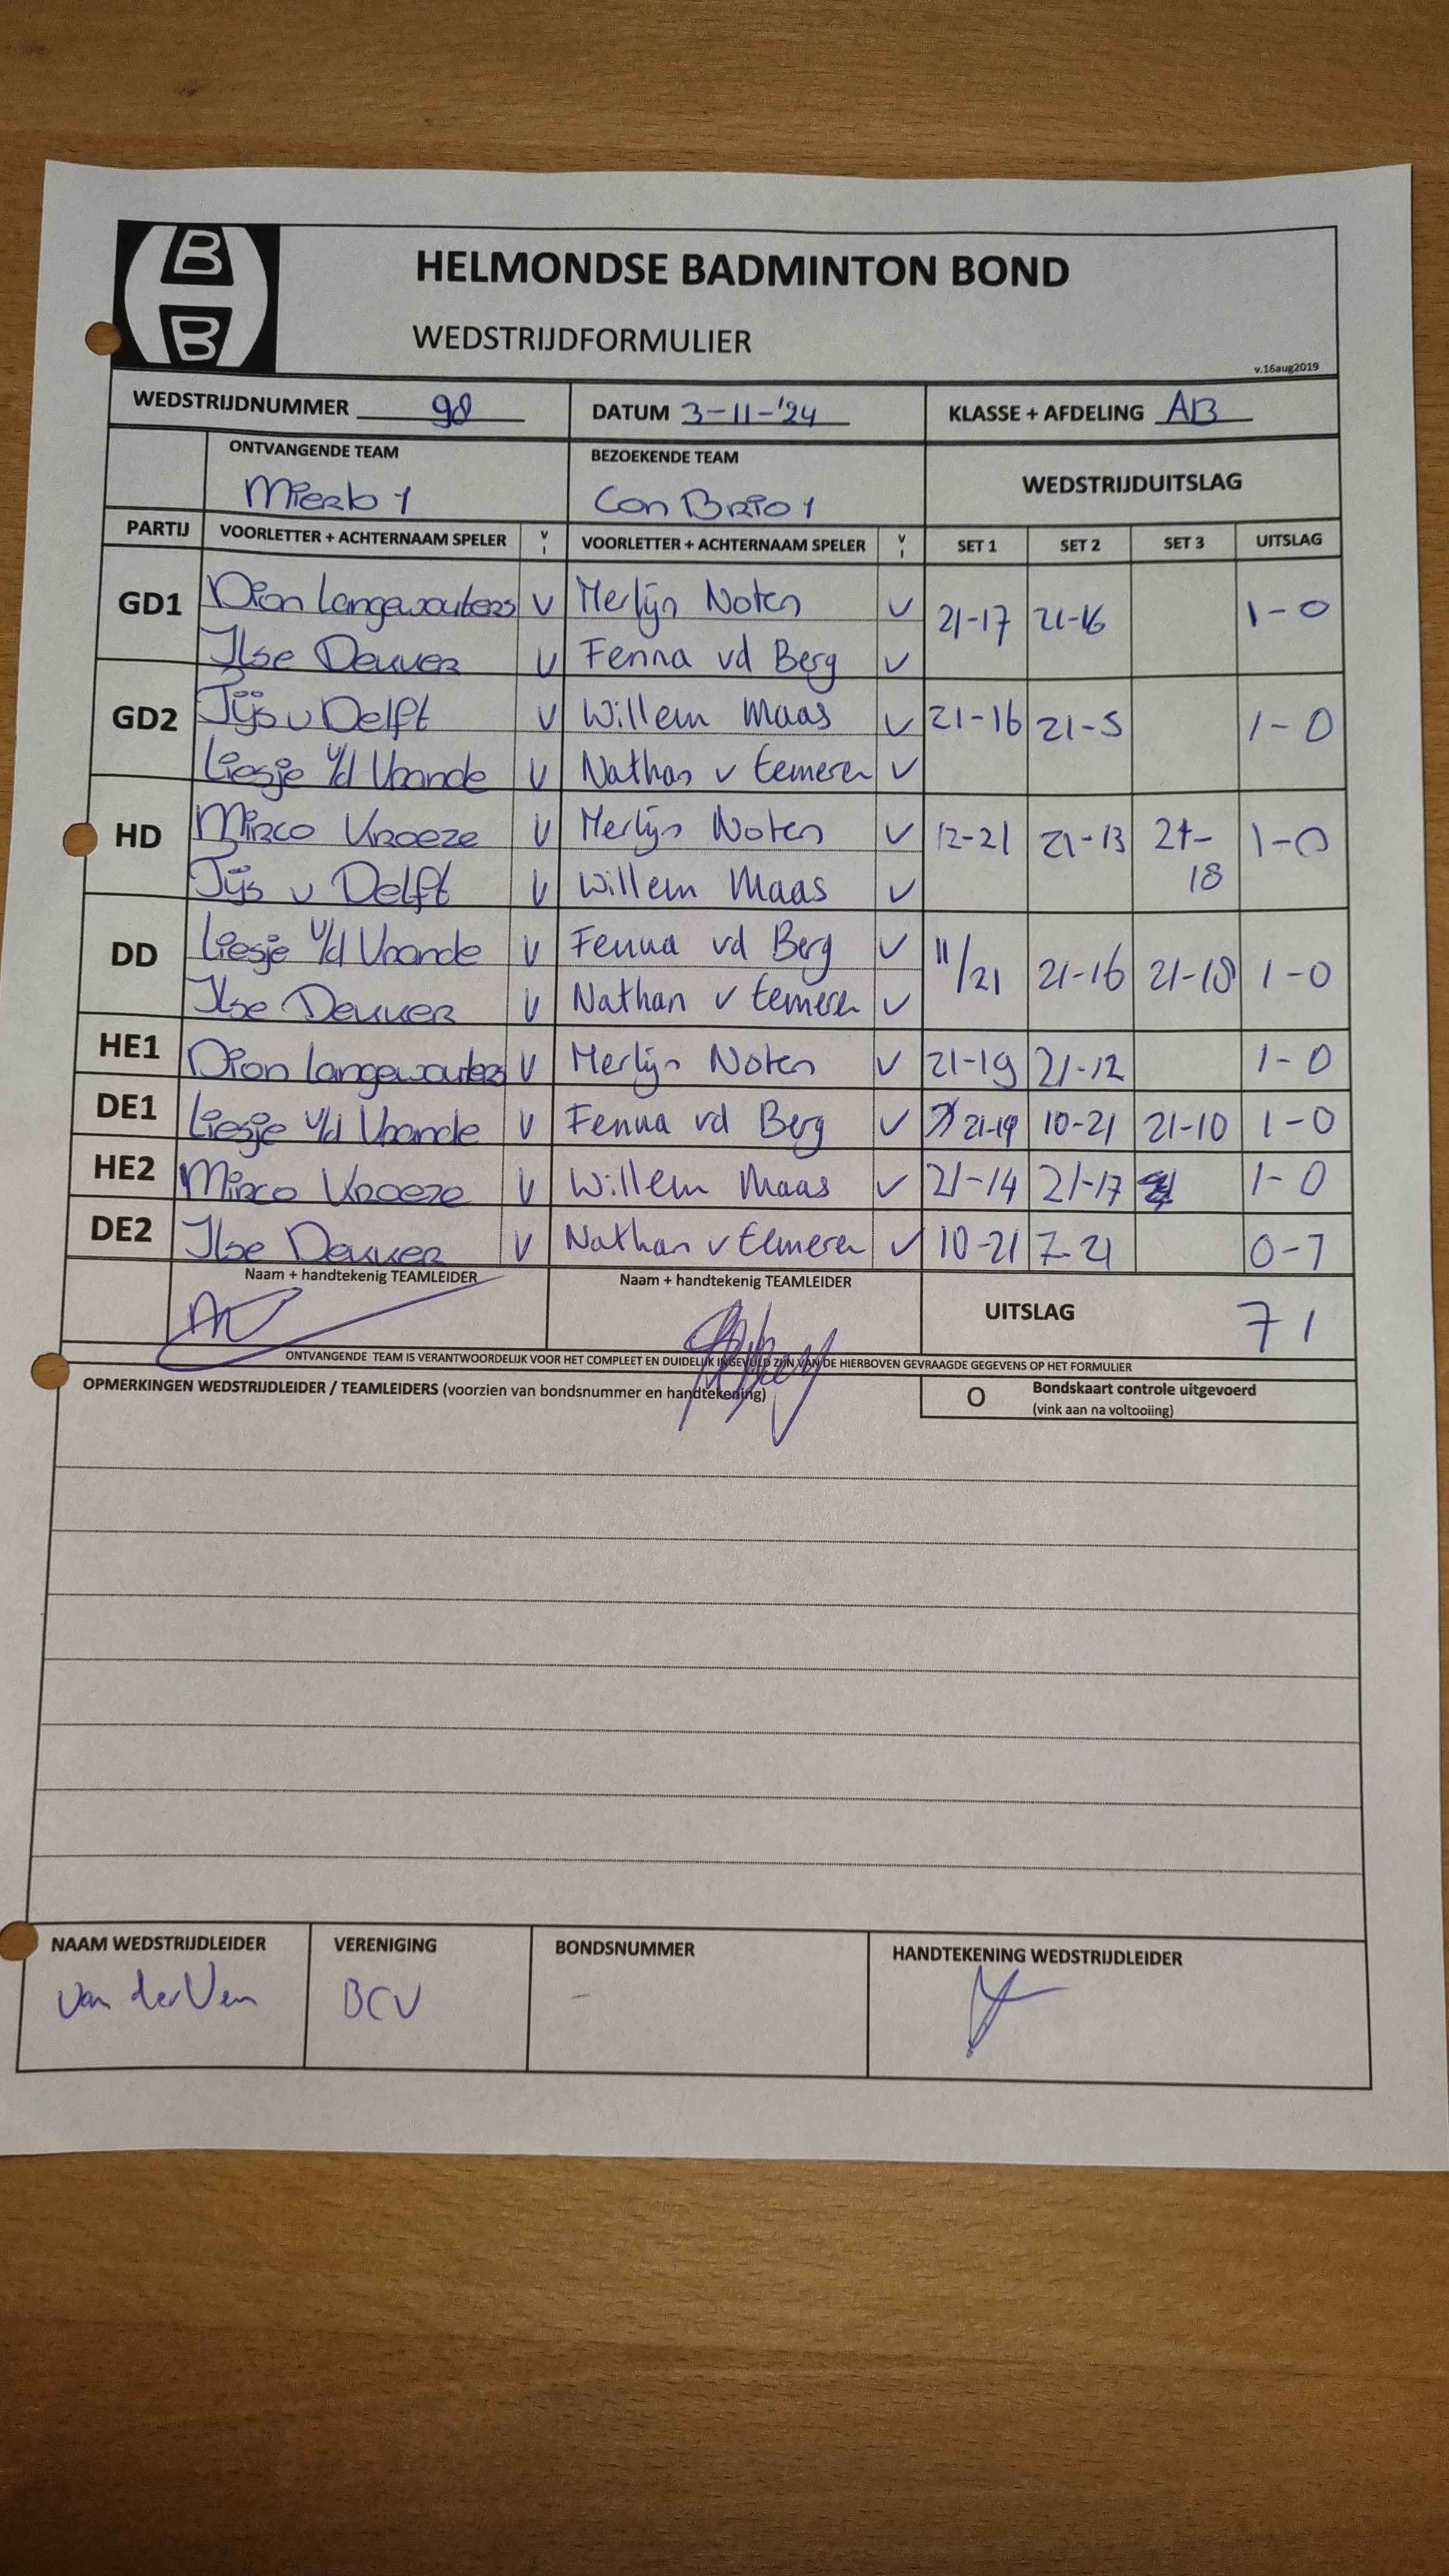 B
B
HELMONDSE BADMINTON BOND
WEDSTRIJDFORMULIER
v.16aug2019
WEDSTRIJDNUMMER 98 DATUM 3-11-'24 KLASSE + AFDELING AB
ONTVANGENDE TEAM BEZOEKENDE TEAM WEDSTRIJDUITSLAG
Mierlo 1 Con Brio 1
PARTIJ VOORLETTER + ACHTERNAAM SPELER V VOORLETTER + ACHTERNAAM SPELER V SET 1 SET 2 SET 3 UITSLAG
GD1 Dion Langewouters V Merlijn Noten V 21-17 21-16 1-0
Ilse Deuver V Fenna vd Berg V
GD2 Tijs v Delft V Willem Maas V 21-16 21-5 1-0
Liesje v/d Vrande V Nathan v Eemeren V
HD Mirco Kroeze V Merlijn Noten V 12-21 21-13 21-18 1-0
Tijs v Delft V Willem Maas V
DD Liesje v/d Vrande V Fenna vd Berg V 11/21 21-16 21-18 1-0
Ilse Deuver V Nathan v Eemeren V
HE1 Dion Langewouters V Merlijn Noten V 21-19 21-12 1-0
DE1 Liesje v/d Vrande V Fenna vd Berg V 21-19 10-21 21-10 1-0
HE2 Mirco Kroeze V Willem Maas V 21-14 21-17 1-0
DE2 Ilse Deuver V Nathan v Eemeren V 10-21 7-21 0-1
Naam + handtekenig TEAMLEIDER Naam + handtekenig TEAMLEIDER UITSLAG 7 1
ONTVANGENDE TEAM IS VERANTWOORDELIJK VOOR HET COMPLEET EN DUIDELIJK INGEVULD ZIJN VAN DE HIERBOVEN GEVRAAGDE GEGEVENS OP HET FORMULIER
OPMERKINGEN WEDSTRIJDLEIDER / TEAMLEIDERS (voorzien van bondsnummer en handtekening) O Bondskaart controle uitgevoerd
(vink aan na voltooiing)
NAAM WEDSTRIJDLEIDER VERENIGING BONDSNUMMER HANDTEKENING WEDSTRIJDLEIDER
van der Ven BCV -